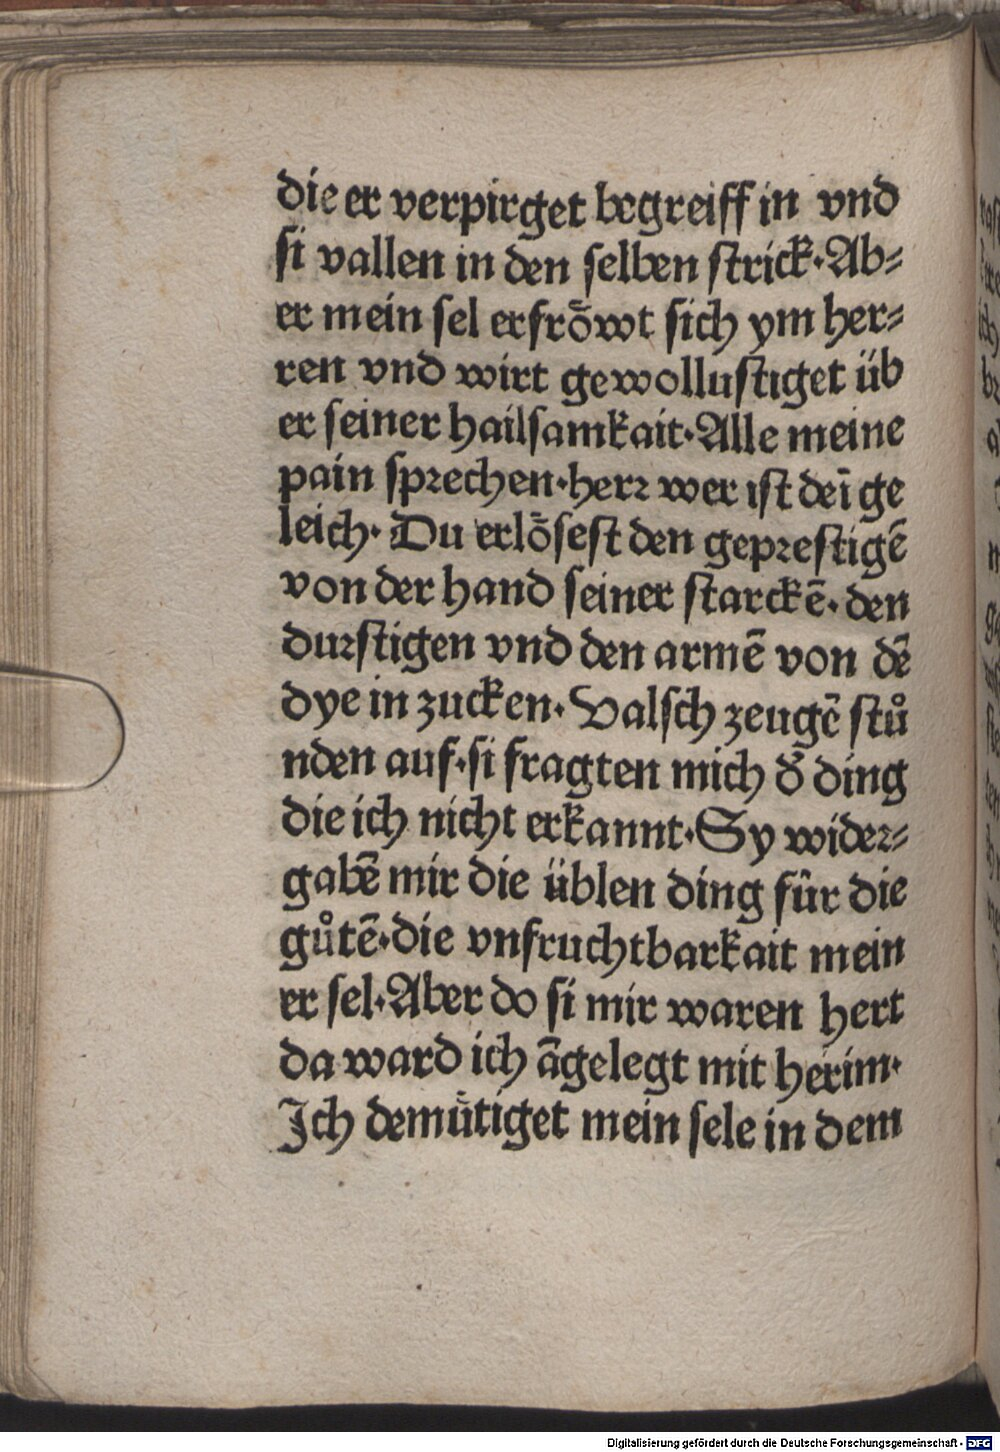 die er verpirget begreiff in vnd
si vallen in den selben strick·Ab⸗
er mein sel erfröwt sich ym her⸗
ren vnd wirt gewollustiget üb
er seiner hailsamkait·Alle meine
pain sprechen·herr wer ist deī ge
leich· Du erlösest den geprestigē
von der hand seiner starckē·den
durstigen vnd den armē von dē
dye in zucken·Valsch zeugē stů
nden auf·si fragten mich d̕ ding
die ich nicht erkannt·Sy wider⸗
gabē mir die üblen ding für die
gůtē·die vnfruchtbarkait mein
er sel·Aber do si mir waren hert
da ward ich āgelegt mit herim·
Ich demütiget mein sele in dem
Digitalisierung gefördert durch die Deutsche Forschungsgemeinschaft - DFG